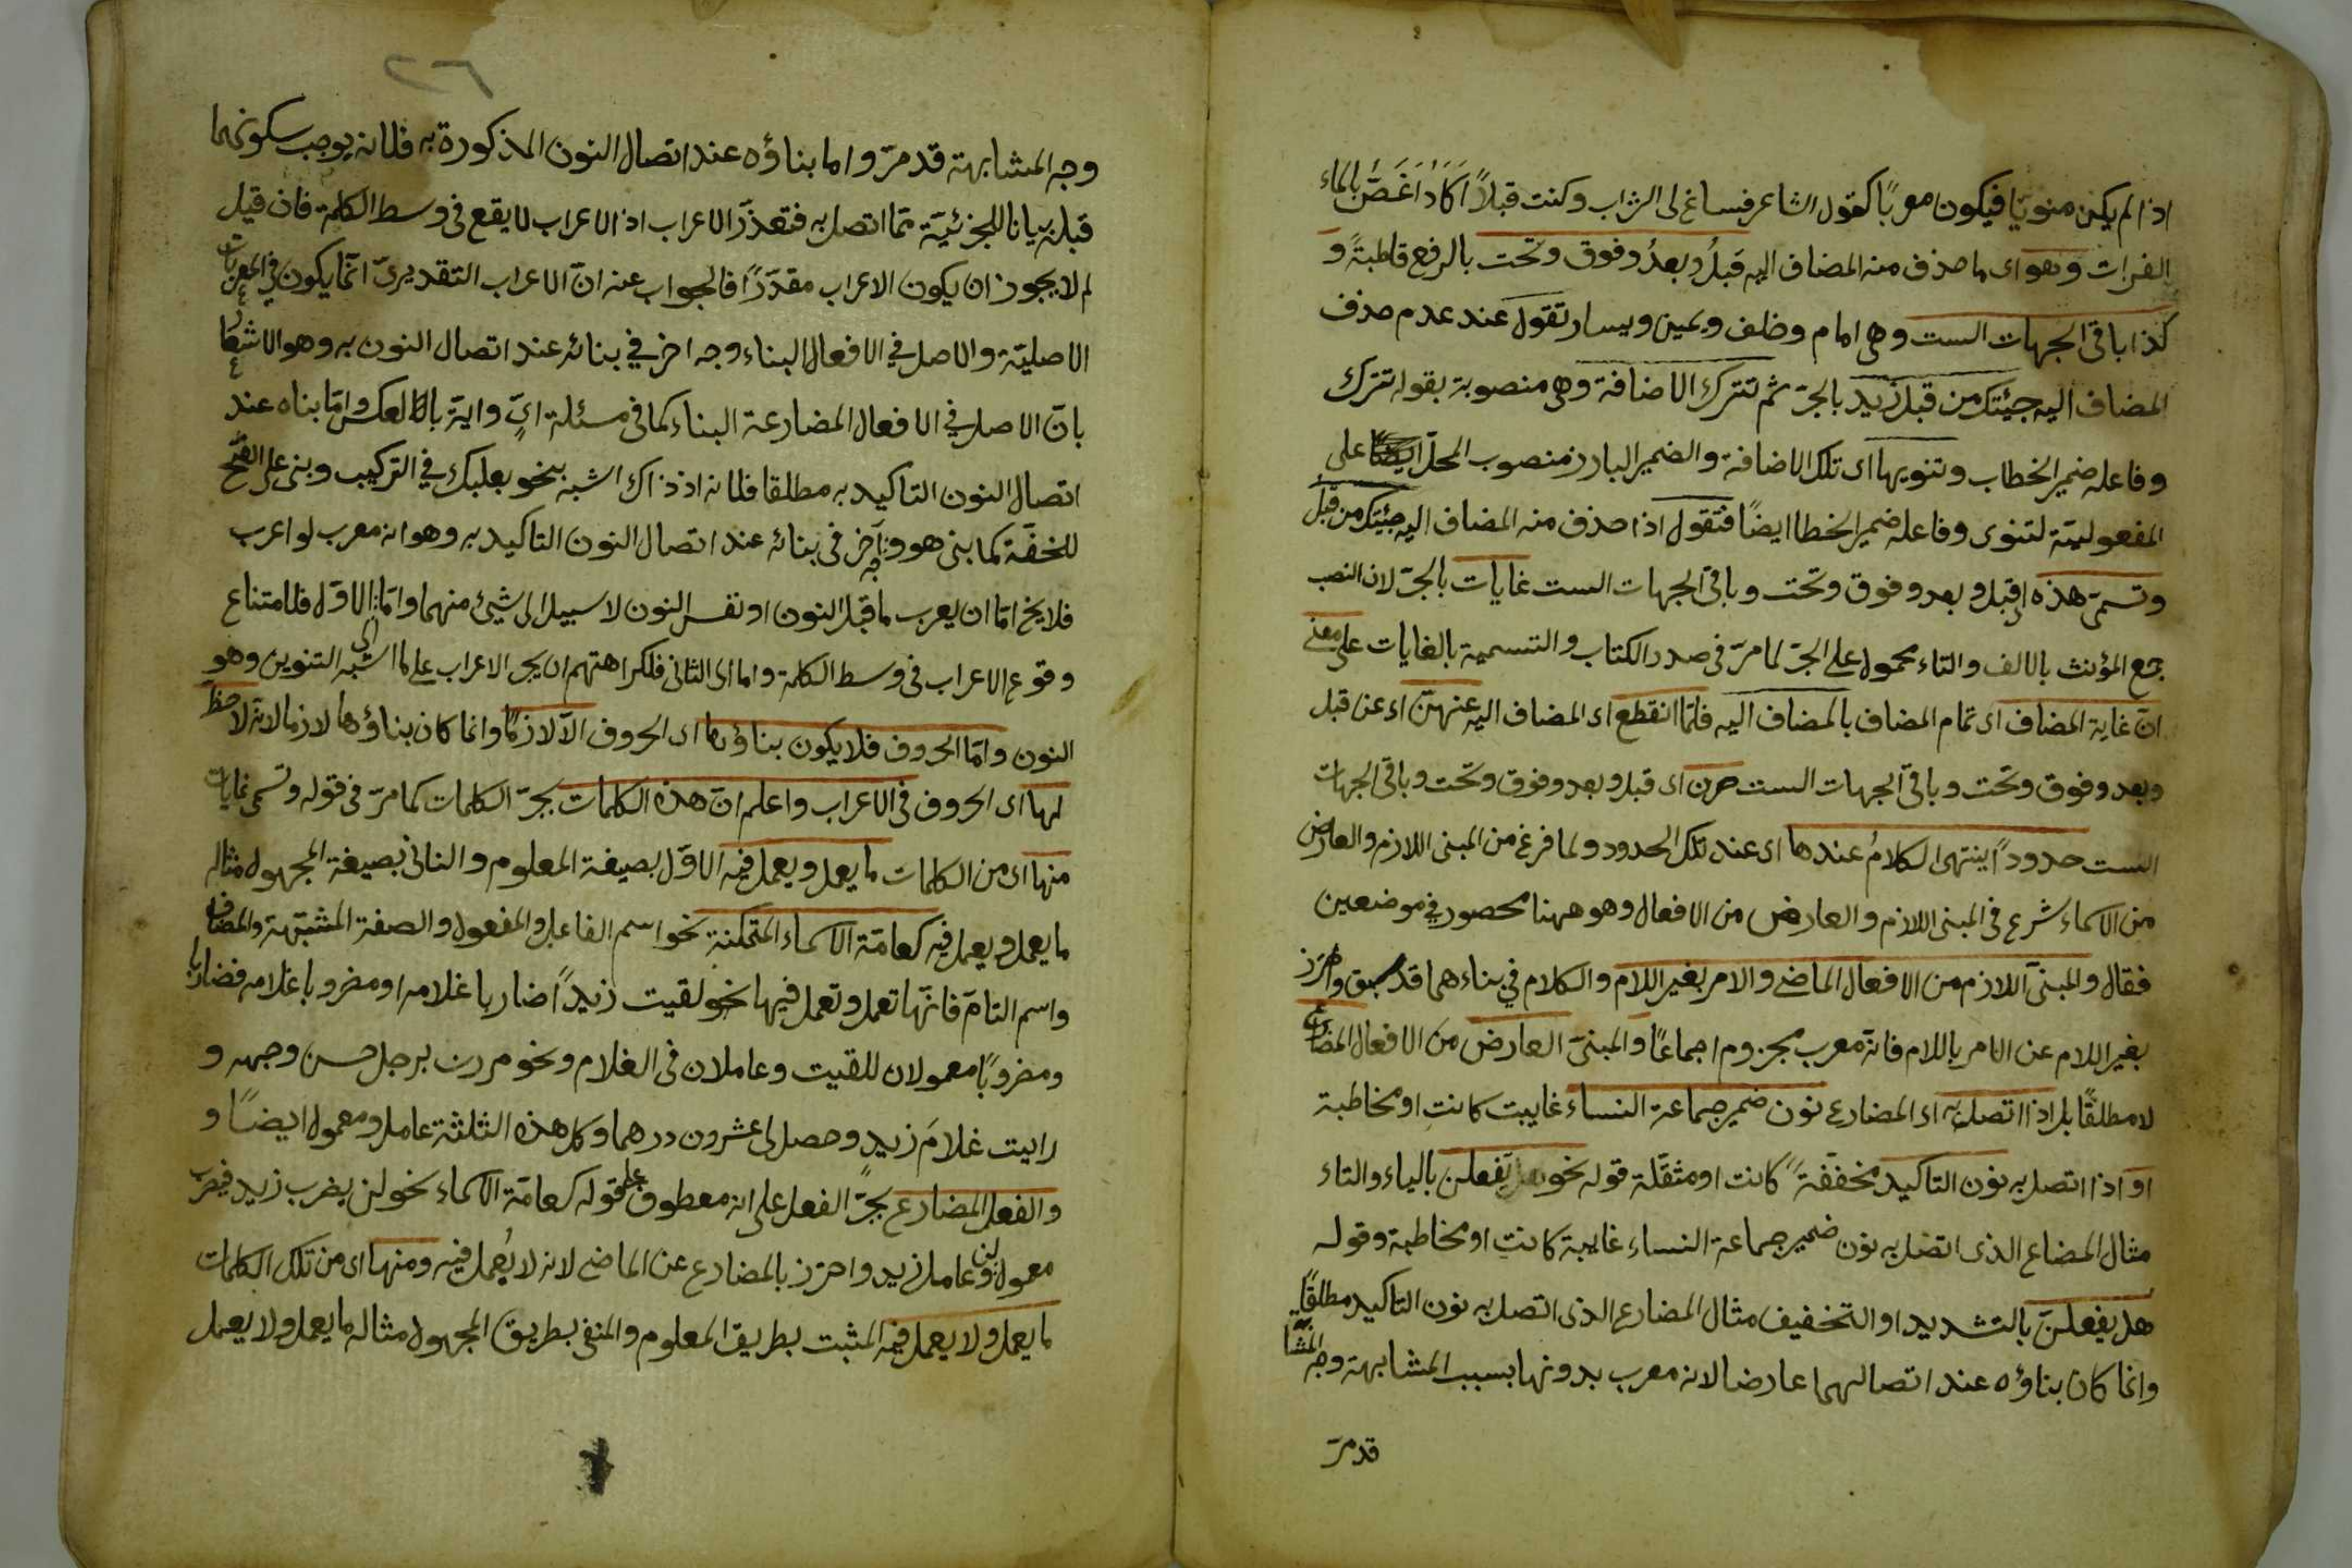 اذا لم يكن منويا فيكون معربًا كقول الشاعر فساغ لى الشراب وكنت قبلًا اَكَادُ اَغَصُّ بالماء
الفرات وهو اى ما حذف منه المضاف اليه قَبلُ وبعدُ وفوق وتحت بالرفع قاطبةً و
كذا باقى الجهات الست وهى امام وخلف ويمين ويسار تقول عند عدم حذف
المضاف اليه جيئتك من قبل زيد بالجرّ ثم تترك الاضافة وهى منصوبة بقوله تترك
وفاعله ضمير الخطاب وتنويها اى تلك الاضافة والضمير البارز منصوب المحل على
المفعوليّة لتنوى وفاعله ضمير الخطاب ايضًا فتقول اذا حذف منه المضاف اليه جئيتك من قبلُ
وتسمىّ هذه اى قبل وبعد وفوق وتحت وباقى الجهات الست غايات بالجرّ لان النصب
جمع المؤنث بالالف والتاء محمول على الجرّ لما مرّ فى صدر الكتاب والتسمية بالغايات على معنى
انّ غاية المضاف اى تمام المضاف بالمضاف اليه فلمّا انقطع اى المضاف اليه عنهنّ اى عن قبل
وبعد وفوق وتحت وباقى الجهات الست صرن اى قبل وبعد وفوق وتحت وباقى الجهات
الست حدودًا ينتهى الكلامُ عندها اى عند تلك الحدود ولما فرغ من المبنى اللازم والعارض
من الاسماء شرع فى المبنى اللازم والعارض من الافعال وهو ههنا محصور فى موضعين
فقال والمبنىّ اللازم من الافعال الماضى والامر بغير اللام والكلام فى بناءهما قد سبق واحترز
بغير اللام عن الامر باللام فانّه معرب مجزوم اجماعًا والمبنىّ العارض من الافعال المضارع
لا مطلقًا بل اذا اتصل به اى المضارع نون ضمير جماعة النساء غاييبت كانت او مخاطبة
او اذا اتصل به نون التاكيد مخفّفةً كانت او مثقّلة قوله نحو هل يفعلن بالياء والتاء
مثال المضاع الذى اتصل به نون ضمير جماعة النساء غايبة كانت او مخاطبة وقوله
هل يفعلنّ بالتشديد او التخفيف مثال المضارع الذى اتصل به نون التاكيد مطلقًا
وانما كان بناؤه عند اتصالهما عارضا لانه معرب بدونها بسبب المشابهة وجه المشابهة
قد مرّ
٢٦
وجه المشابهة قد مرّ واما بناؤه عند اتصال النون المذكورة به فلانه يوجب سكون ما
قبله بيانا للجزئيّة ممّا اتصل به فتعذّر الاعراب اذ الاعراب لا يقع فى وسط الكلمة فان قيل
لم لا يجوز ان يكون الاعراب مقدّرًا فالجواب عنه انّ الاعراب التقديرىّ انّما يكون فى المعربات
الاصليّة والاصل فى الافعال البناء وجه اخر فى بنائه عند اتصال النون به وهو الاشعار
بانّ الاصل فى الافعال المضارعة البناء كما فى مسئلة اىّ وايّة بالعكس وامّا بناه عند
اتصال النون التاكيد به مطلقا فلانه اذ ذاك اشبه بنحو بعلبك فى التركيب وبنى على الفتح
للخفّة كما بنى هو ووجه آخر فى بنائه عند اتصال النون التاكيد به وهو انه معرب لو اعرب
فلا يخ امّا ان يعرب ما قبل النون او نفس النون لا سبيل الى شيئ منهما وامّا الاوّل فلامتناع
وقوع الاعراب فى وسط الكلمة واما اى الثانى فلكراهتهم ان يجر الاعراب على ما اشبه التنوين وهو
النون وامّا الحروف فلا يكون بناؤها اى الحروف الّا لازمًا وانما كان بناؤها لازما لانه لا حظّ
لها اى الحروف فى الاعراب واعلم انّ هذه الكلمات بجرّ الكلمات كما مرّ فى قوله وتسمى غايات
منها اى من الكلمات ما يعمل ويعمل فيه الاوّل بصيغة المعلوم والثانى بصيغة المجهول مثاله
ما يعمل ويعمل فيه كعامّة الاسماء المتمكنة نحو اسم الفاعل والمفعول والصفة المشبّهة والمضاف
واسم التامّ فانّها تعمل وتعمل فيها نحو لقيت زيدًا ضاربا غلامه او مضروبا غلامه فضاربا
ومضروبًا معمولان للقيت وعاملان فى الغلام ونحو مررت برجل حسن وجهه و
رايت غلامَ زيدٍ وحصل لى عشرون درهما وكل هذه الثلثة عامل ومعمول ايضًا و
والفعل المضارع بجرّ الفعل على انه معطوف على قوله كعامّة الاسماء نحو لن يضرب زيد فيضرب
معمول لن وعامل زيد واحترز بالمضارع عن الماضى لانه لا يُعمل فيه ومنها اى من تلك الكلمات
ما يعمل ولا يعمل فيه المثبت بطريق المعلوم والمنفى بطريق المجهول مثاله ما يعمل ولا يعمل